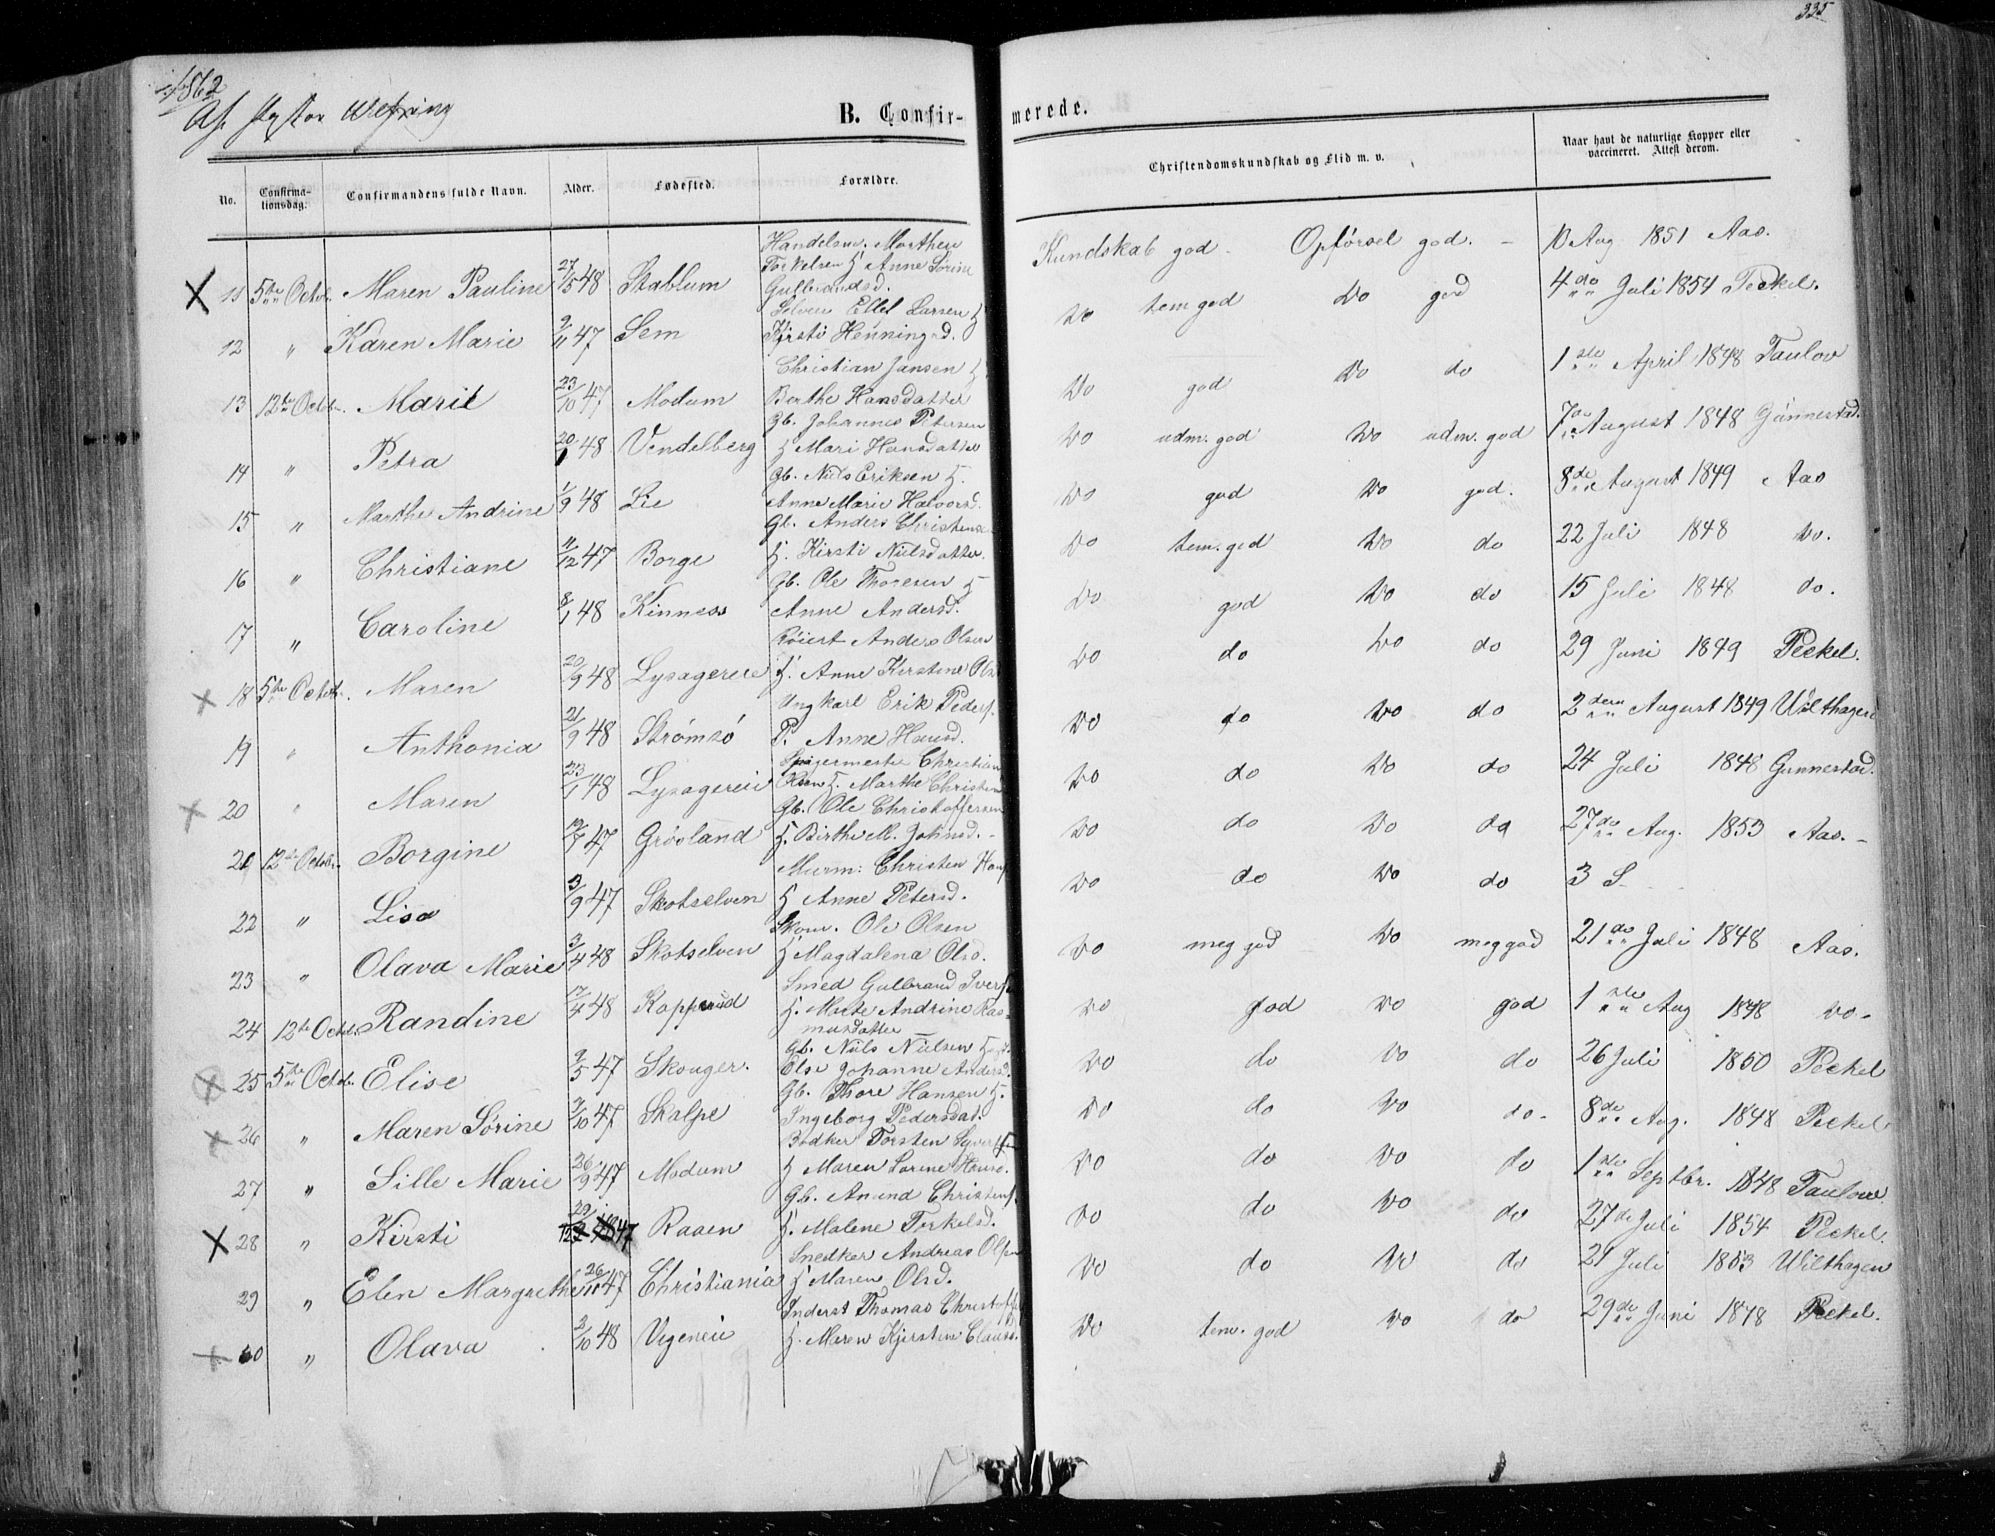 335
1862
Af Pastor Wefring
B. Confir-
merede.
No.
Confirma-
tionsdag.
Confirmandens fulde Navn.
Alder.
Fødested.
Forældre.
Christendomskundskab og Flid m. v.
Naar havt de naturlige Kopper eller
vaccineret. Attest derom.
Handelsm. Marthin
Torkelsen H Anne Sørine
X 11 5te Octob. Maren Pauline 27/5 48 Stablum Gulbrandsd. Kundskab god - Opførsel god. - 10 Aug 1851 Aas.
Selvei Ellef Larsen H
12 " Karen Marie 9/11 47 Sem Kirsti Henningsd. do tem god do god 4de Juli 1854 Peckel.
Christian Jansen H
13 12te Octob. Marit 23/10 47 Modum Berthe Hansdatter do god do do 1ste April 1848 Taulow
Gb. Johannes Petersen
14 " Petra 20/1 48 Vendelberg H Mari Hansdatter do udm. god do udm. god 7de August 1848 Gunnestad.
Gb. Nils Eriksen H.
15 " Marthe Andrine 1/9 48 Lie Anne Marie Halvorsd. do god do god. 8de August 1849 Aas
Gb. Anders Christens
16 " Christiane 11/12 47 Borge H. Kirsti Nilsdatter. do tem. god do do 22 Juli 1848 do.
Gb. Ole Thoresen H
17 " Caroline 8/1 48 Kinness Anne Andersd. do god do do 15 Juli 1848 do.
Anders Olsen
X 18 5te Octob. Maren 20/9 48 Lysagereie H. Anne Kirstine Ols do do do do 29 Juni 1849 Peckel.
Ungkarl Erik Peders.
19 " Anthonia 21/9 48 Strømsø P. Anne Hansd. do do do do 2den August 1849 Wilthagen
Christian
X 20 " Maren 23/1 48 Lysagereie Olsen H. Marthe Christen do do do do 24 Juli 1848 Gunnestad.
Gb. Ole Christoffersen
21 12te Octob. Borgine 47 Grøsland H. Birthe M. Johnsd. - do do do do 27de Aug. 1853 Aas. -
Murm: Christen Hans
22 " Lisa 3/9 47 Skotselven H Anne Petersd. do do do do 3 S
Skom. Ole Olsen
23 " Olava Marie 3/4 48 Skotselven H Magdalena Olsd. do meg god do meg god 21de Juli 1848 Aas.
Smed Gulbrand Ivers
24 12te Octob. Randine 17/4 48 Kopperud H. Marte Andrine Ras-
musdatter do god do god 1ste Aug 1848 do -
Gb. Nils Nielsen H
X 25 5te Octob. Elise 2/5 47 Skouger. Else Johanne Andersd. do do do do 26 Juli 1850 Peckel
Gb. Thore Hansen H.
X 26 " Maren Sørine 7/10 47 Skalpe Ingeborg Pedersdat. do do do do - 8de Aug. 1848 Peckel
Bødker Torsten Syversen
27 " Sille Marie 26/9 47 Modum H Maren Sorine Hansd. do do do do 1ste Septbr. 1848 Taulow
Gb. Anund Christens.
X 28 " Kirsti 29/12 47 Raaen H. Malene Torkelsd. do do do do 27de Juli 1854 Peckel.
Snedker Andreas Olsen
29 " Elen Margrethe 26/11 47 Christiania H Maren Olsd. do do do do 21 Juli 1853 Wilthagen
Inderst Thomas Christoff
X 30 " Olava 2/10 48 Vegeneie H. Maren Kjersten Clausd. do tem. god do do 29de Juni 1848 Peckel.